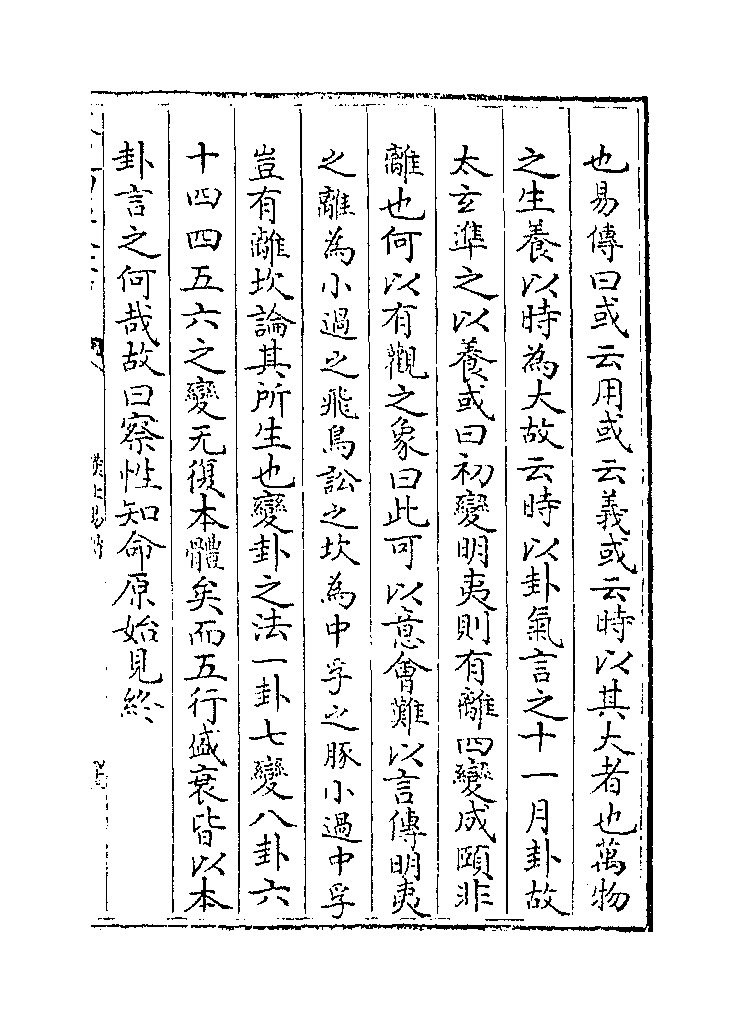 也易傳曰或云用或云義或云時以其大者也萬物
之生養以時為大故云時以卦氣言之十一月卦故
太玄準之以養或曰初變明夷則有離四變成頤非
離也何以有觀之象曰此可以意會難以言傳明夷
之離為小過之飛鳥訟之坎為中孚之豚小過中孚
豈有離坎論其所生也變卦之法一卦七變八卦六
十四四五六之變无復本體矣而五行盛衰皆以本
卦言之何哉故曰察性知命原始見終
漢上易傳